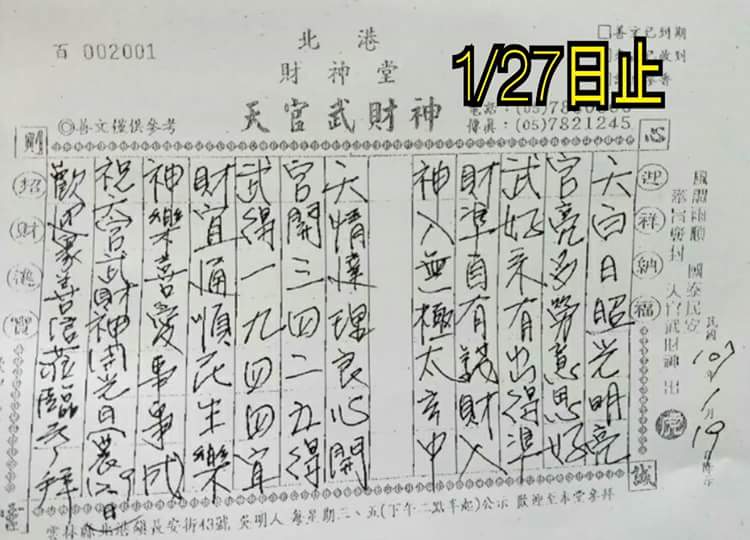 百 002001
北港
財神堂
天官武財神
1/27日止
傳真:(05)7821245
◎善文僅供參考
心
誠
迎祥納福
招財進寶
風調雨順 國泰民安
天官武財神 出
民國107年1月19日
天白日昭光明亮
官亮多勞意思好
武好來有出得準
財準自有錢財入
神入無極太玄中
天情達理良心開
官開三四二五得
武得一九四四宜
財宜通順民生樂
神樂喜愛事事成
祝天官武財神開光日
歡迎眾善信蒞臨參拜
雲林縣北港鎮長安街43號 吳明人 每星期二、五(下午二點半起)公示 歡迎至本堂參拜